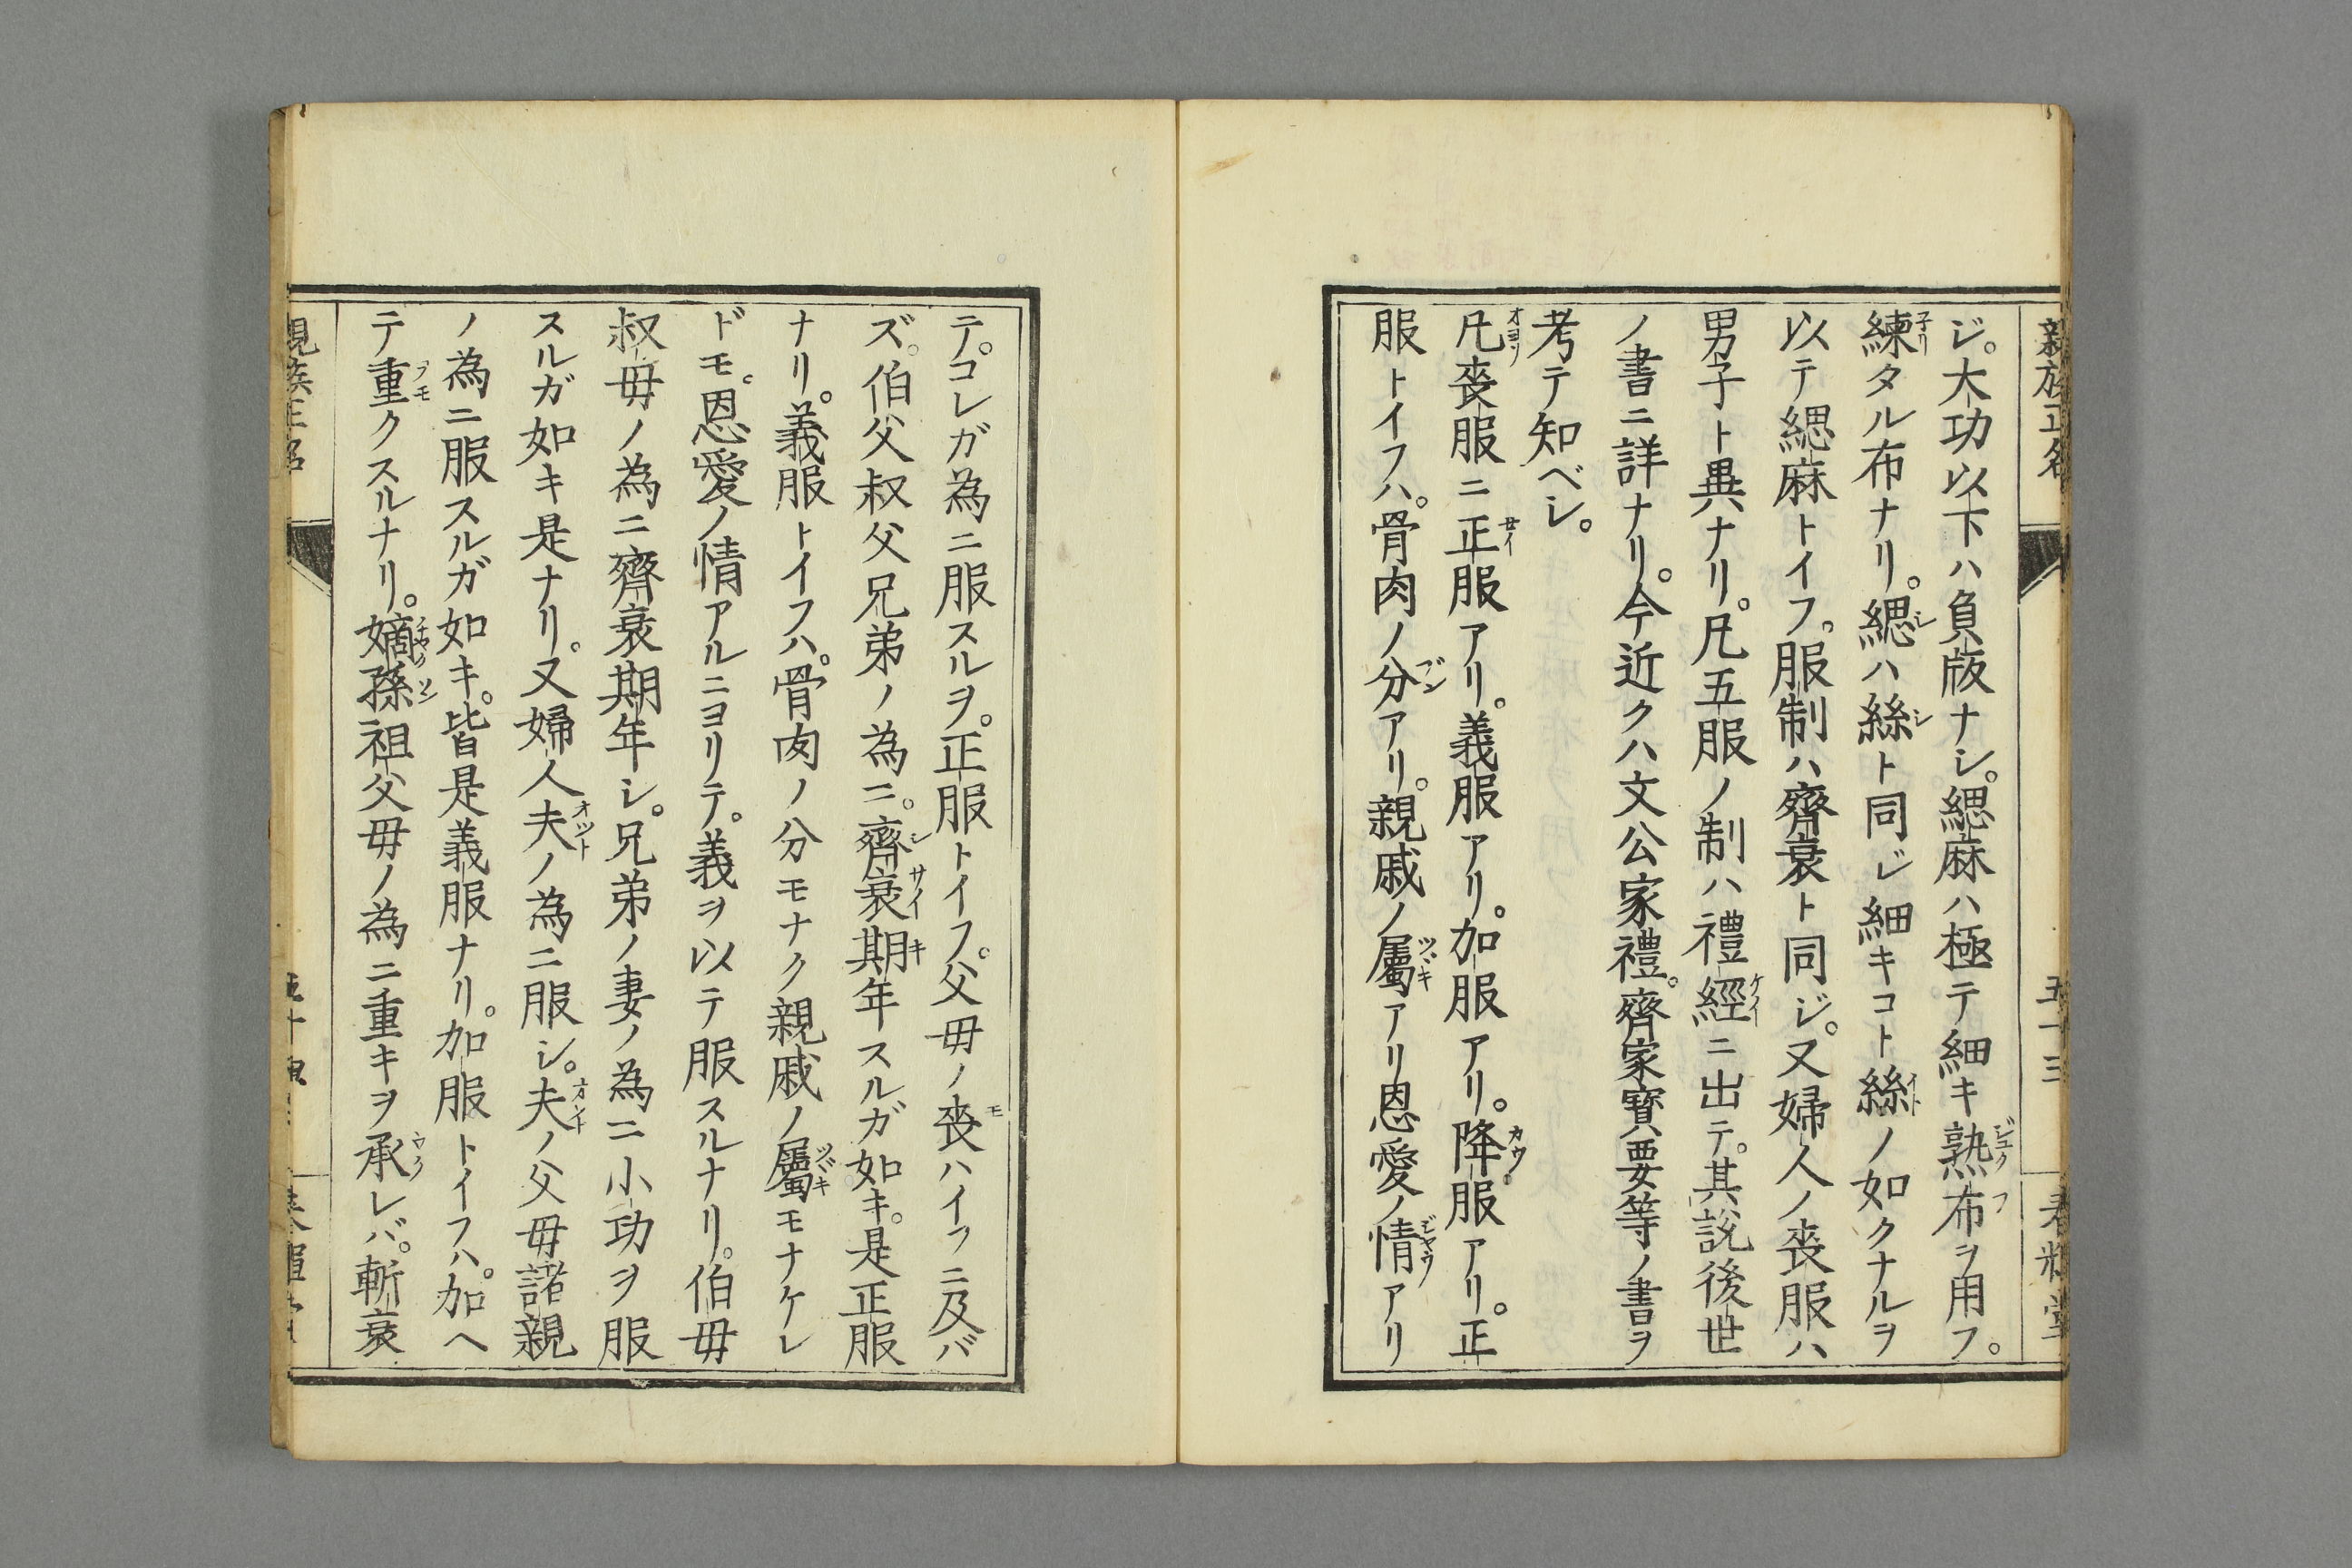 親族正名
五十三
春輝堂
ジ。大功以下ハ負版ナシ。緦麻ハ極テ細キ熟布ヲ用フ。
練タル布ナリ。緦ハ絲ト同ジ細キコト絲ノ如クナルヲ
以テ緦麻トイフ。服制ハ齊衰ト同ジ。又婦人ノ喪服ハ
男子ト異ナリ。凡五服ノ制ハ禮經ニ出テ。其說後世
ノ書ニ詳ナリ。今近クハ文公家禮。齊家寶要等ノ書ヲ
考テ知ベシ。
凡喪服ニ正服アリ。義服アリ。加服アリ。降服アリ。正
服トイフハ。骨肉ノ分アリ。親戚ノ屬アリ恩愛ノ情アリ
テ。コレガ為ニ服スルヲ。正服トイフ。父母ノ喪ハイフニ及バ
ズ。伯父叔父兄弟ノ為ニ。齊衰期年スルガ如キ。是正服
ナリ。義服トイフハ。骨肉ノ分モナク親戚ノ屬モナケレ
ドモ。恩愛ノ情アルニヨリテ。義ヲ以テ服スルナリ。伯母
叔母ノ為ニ齊衰期年シ。兄弟ノ妻ノ為ニ小功ヲ服
スルガ如キ是ナリ。又婦人夫ノ為ニ服シ。夫ノ父母諸親
ノ為ニ服スルガ如キ。皆是義服ナリ。加服トイフハ。加ヘ
テ重クスルナリ。嫡孫祖父母ノ為ニ重キヲ承レバ。斬衰
親族正名